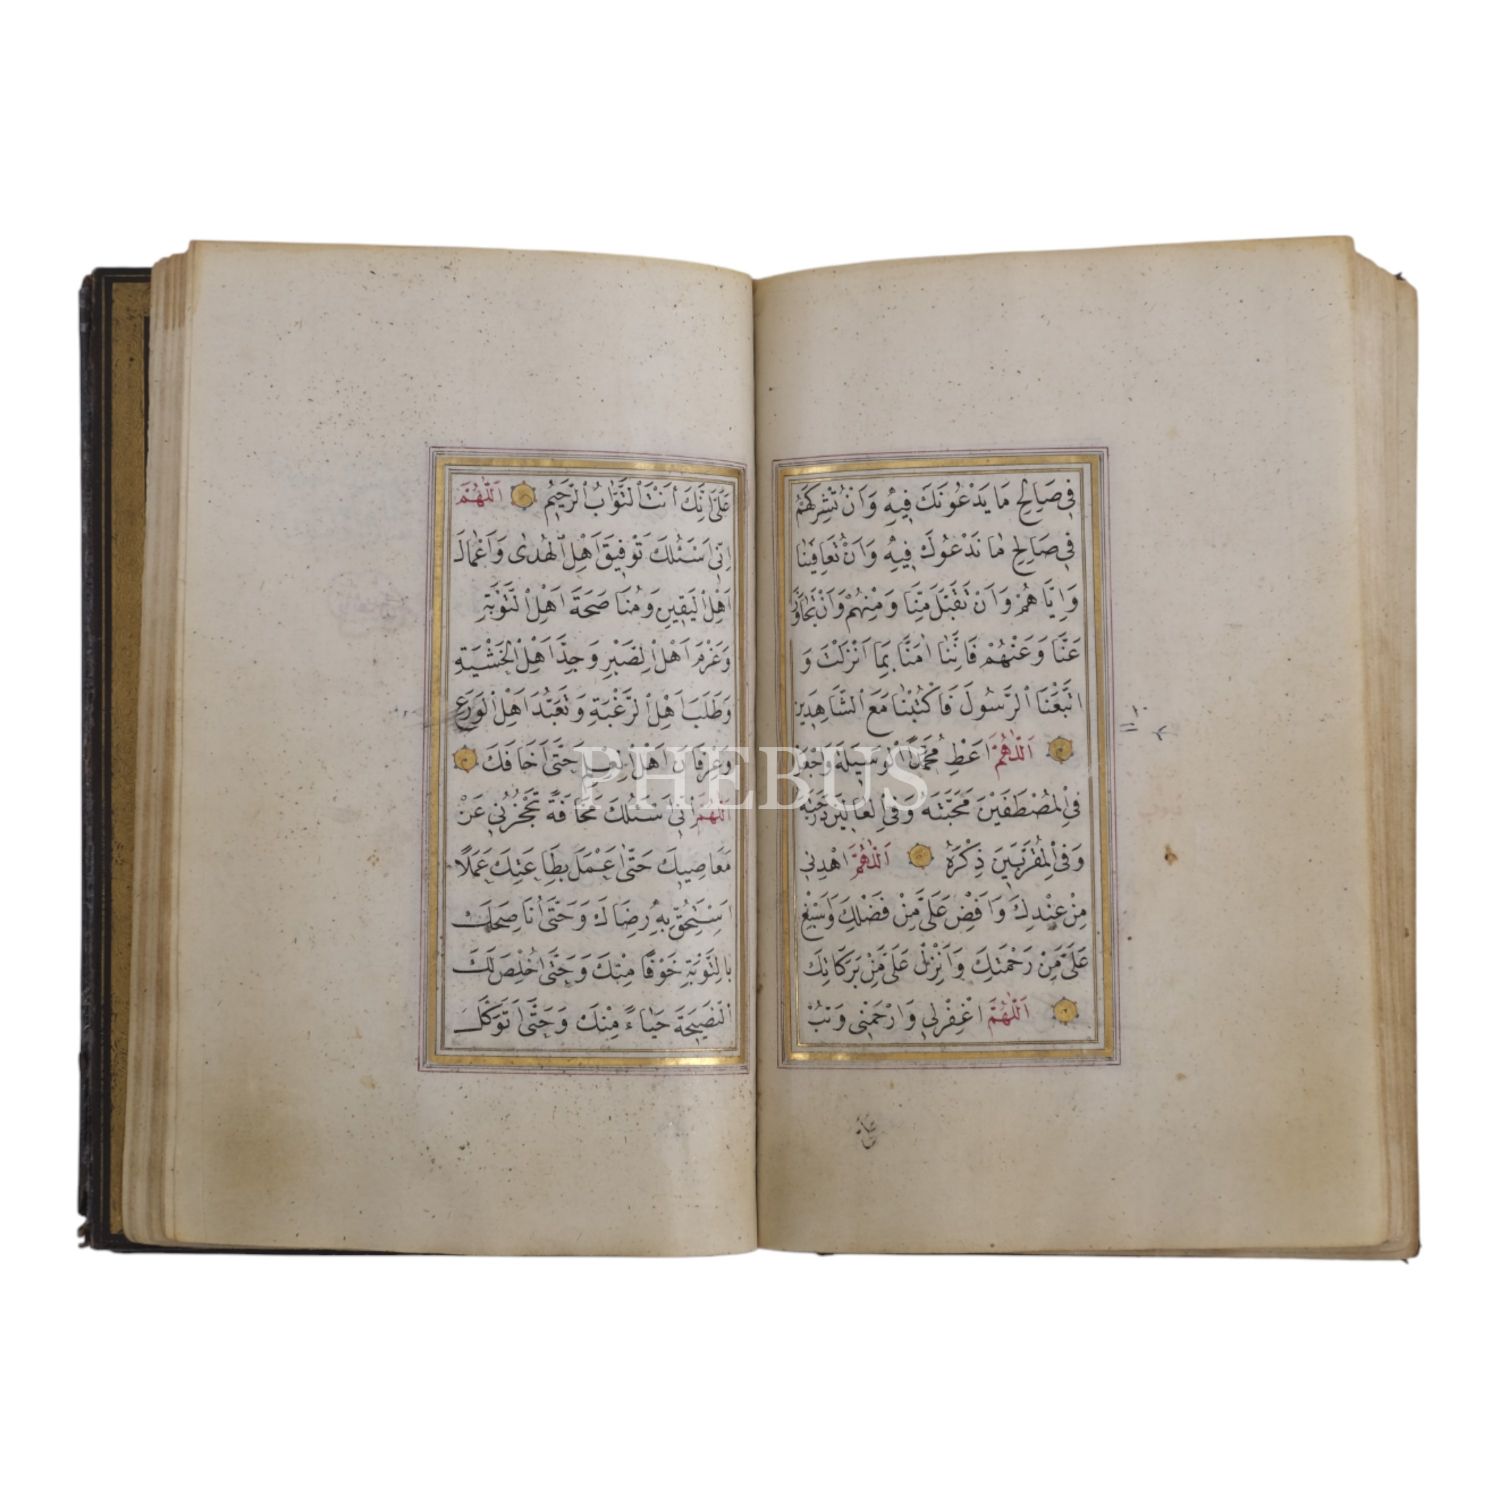 فِي صَالِحِ مَا يَدْعُونَكَ فِيهِ وَاَنْ تُشْرِكَهُمْ
فِي صَالِحِ مَا نَدْعُوكَ فِيهِ وَاَنْ تُعَافِيَنَا
وَاِيَّاهُمْ وَاَنْ تَقَبَّلَ مِنَّا وَمِنْهُمْ وَاَنْ تَجَاوَزَ
عَنَّا وَعَنْهُمْ فَاِنَّنَا اٰمَنَّا بِمَا اَنْزَلْتَ وَ
اتَّبَعْنَا الرَّسُولَ فَاكْتُبْنَا مَعَ الشَّاهِدِينَ
اَللّٰهُمَّ اَعْطِ مُحَمَّدًا الْوَسِيلَةَ وَاجْعَلْ
فِي الْمُصْطَفَيْنَ مَحَبَّتَهُ وَفِي الْعَالِينَ دَرَجَتَهُ
وَفِي الْمُقَرَّبِينَ ذِكْرَهُ اَللّٰهُمَّ اهْدِنِي
مِنْ عِنْدِكَ وَاَفِضْ عَلَيَّ مِنْ فَضْلِكَ وَاَسْبِغْ
عَلَيَّ مِنْ رَحْمَتِكَ وَاَنْزِلْ عَلَيَّ مِنْ بَرَكَاتِكَ
اَللّٰهُمَّ اغْفِرْلِي وَارْحَمْنِي وَتُبْ
عَلَيَّ اِنَّكَ اَنْتَ التَّوَّابُ الرَّحِيمُ اَللّٰهُمَّ
اِنِّي اَسْئَلُكَ تَوْفِيقَ اَهْلِ الْهُدٰى وَاَعْمَالَ
اَهْلِ الْيَقِينِ وَمُنَاصَحَةَ اَهْلِ التَّوْبَةِ
وَعَزْمَ اَهْلِ الصَّبْرِ وَجِدَّ اَهْلِ الْخَشْيَةِ
وَطَلَبَ اَهْلِ الرَّغْبَةِ وَتَعَبُّدَ اَهْلِ الْوَرَعِ
وَعِرْفَانَ اَهْلِ الْعِلْمِ حَتّٰى اَخَافَكَ
اَللّٰهُمَّ اِنِّي اَسْئَلُكَ مَخَافَةً تَحْجُزُنِي عَنْ
مَعَاصِيكَ حَتّٰى اَعْمَلَ بِطَاعَتِكَ عَمَلًا
اَسْتَحِقُّ بِهِ رِضَاكَ وَحَتّٰى اُنَاصِحَكَ
بِالتَّوْبَةِ خَوْفًا مِنْكَ وَحَتّٰى اُخْلِصَ لَكَ
النَّصِيحَةَ حَيَاءً مِنْكَ وَحَتّٰى اَتَوَكَّلَ
PHEBUS